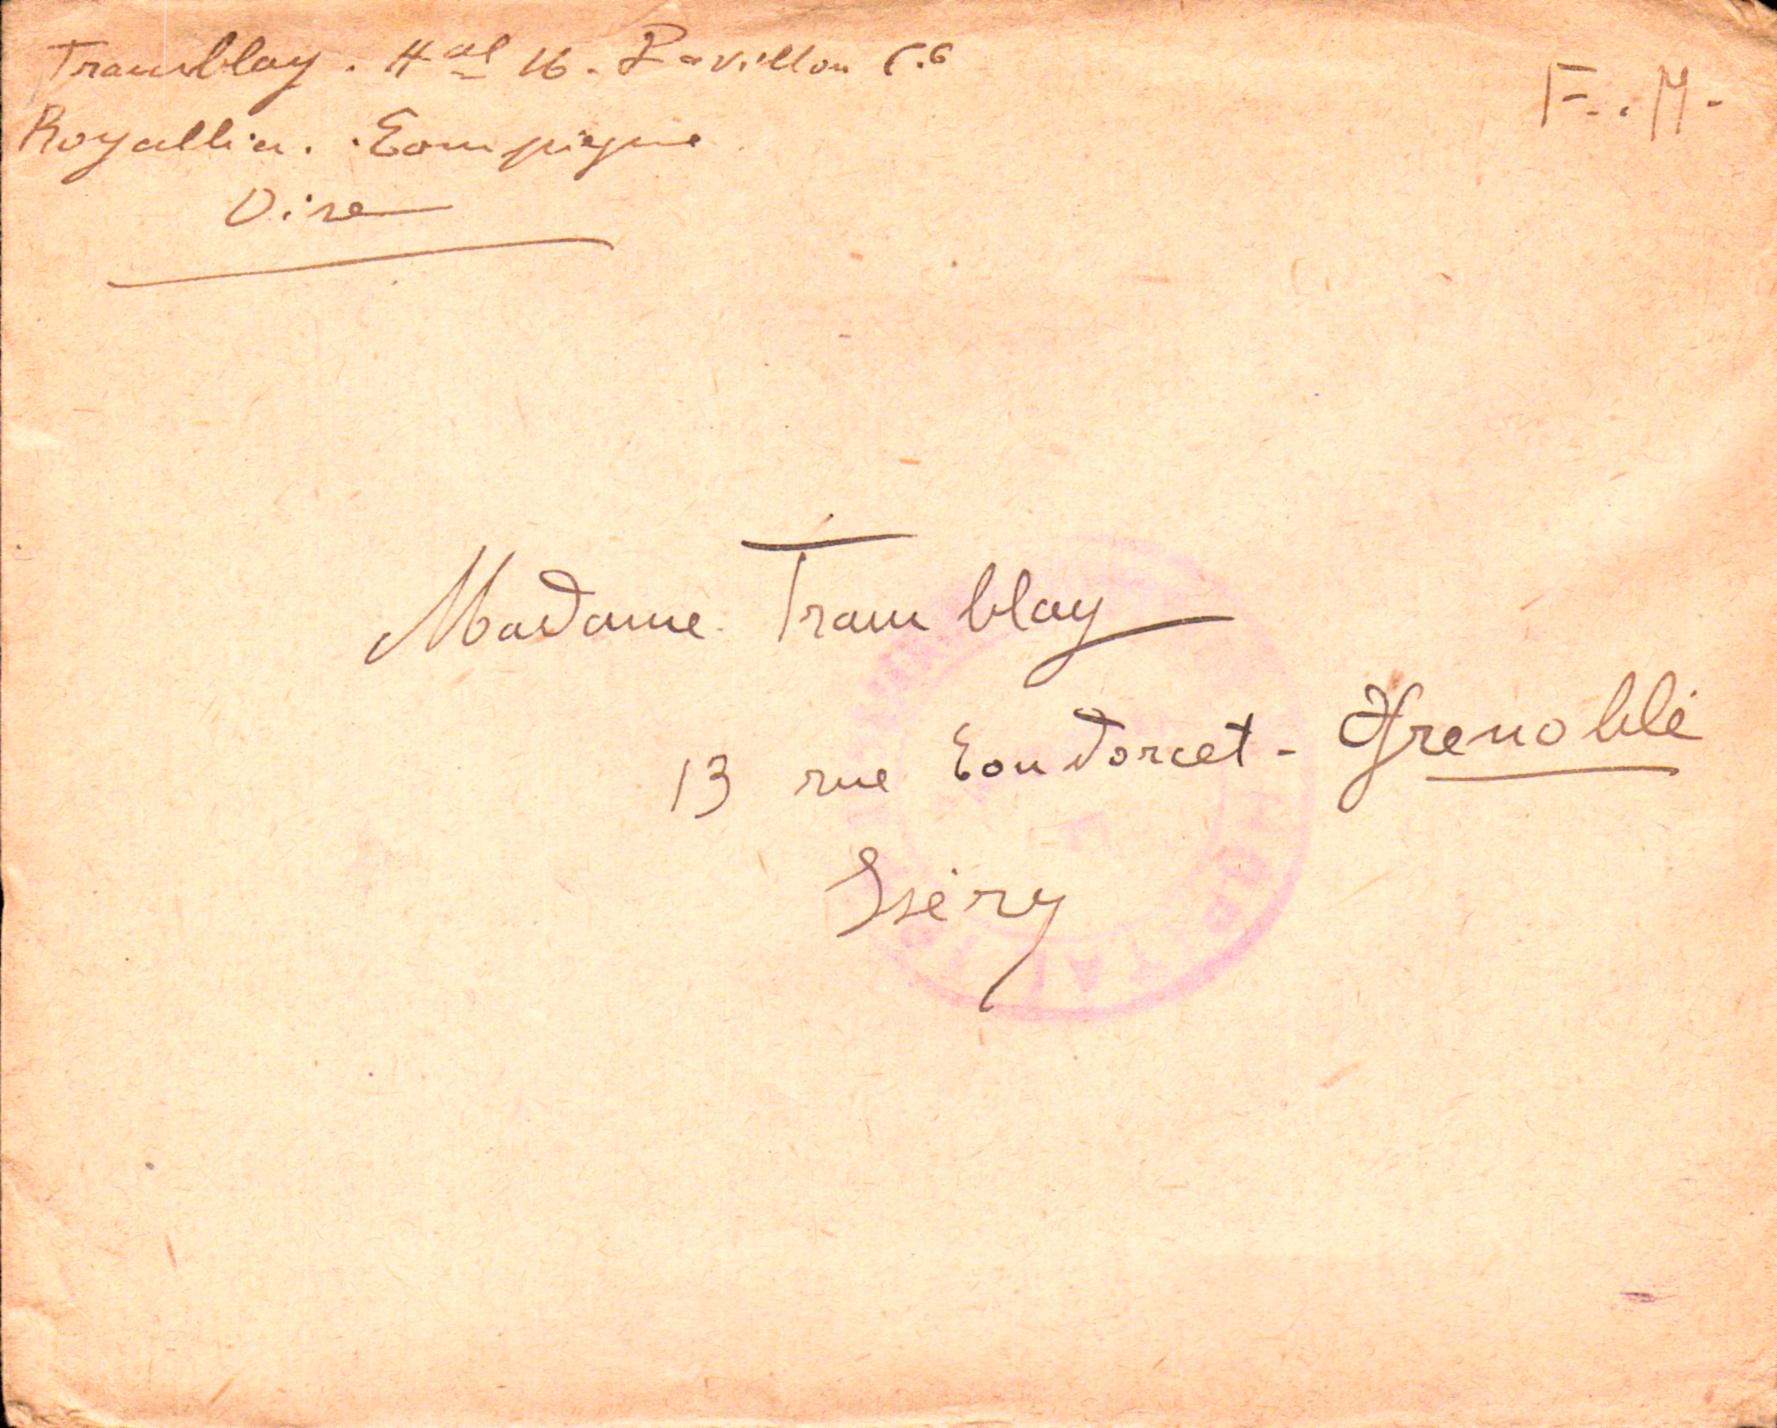 Tramblay. Hal 16. Pavillon C.6
F.M.
Royallieu. Compiègne
Oise
Madame Tramblay
13 rue Condorcet - Grenoble
Isère
HOPITAL